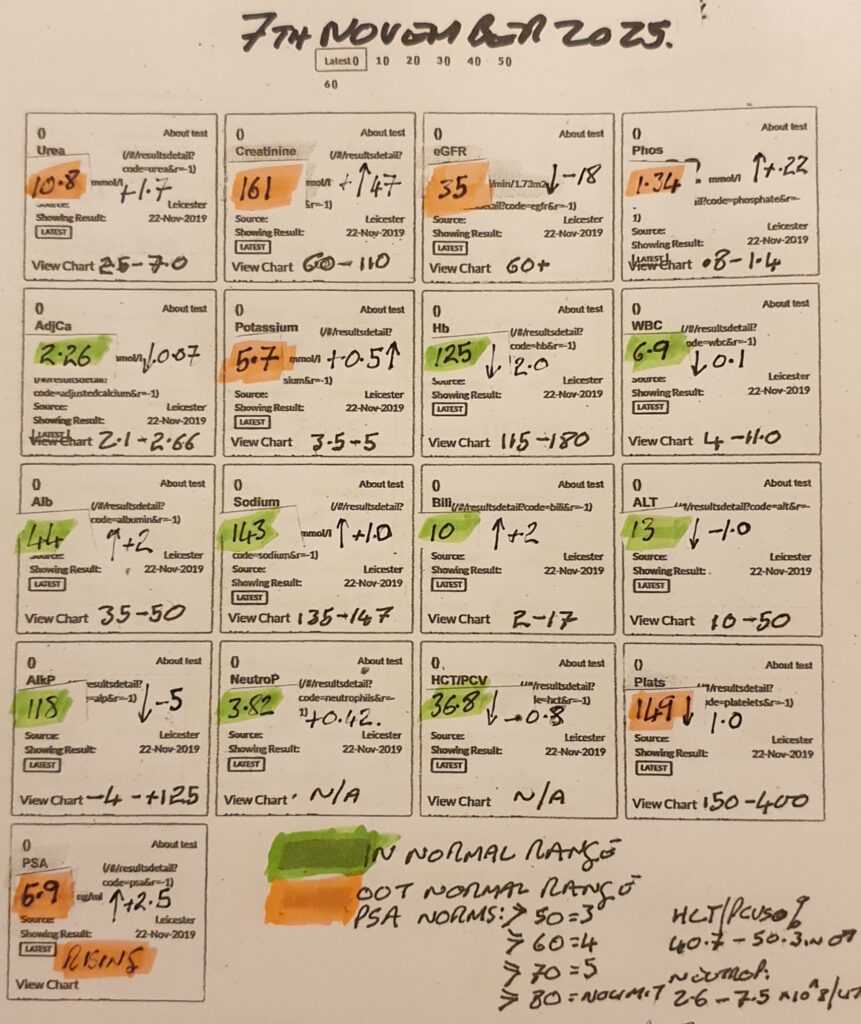 7TH NOVEMBER 2025.
Latest 0 10 20 30 40 50
60
() About test
Urea (/#/resultsdetail?
code=urea&r=-1)
10.8 mmol/l +1.7
Source: Leicester
Showing Result: 22-Nov-2019
LATEST
View Chart 2.5-7.0
() About test
Creatinine (/#/resultsdetail?
161 mol/l +↑47
&r=-1)
Source: Leicester
Showing Result: 22-Nov-2019
LATEST
View Chart 60-110
() About test
eGFR
35 /min/1.73m2 ↓-18
etail?code=egfr&r=-1)
Source: Leicester
Showing Result: 22-Nov-2019
LATEST
View Chart 60+
() About test
Phos
1.34 mmol/l ↑+.22
il?code=phosphate&r=-
1)
Source: Leicester
Showing Result: 22-Nov-2019
LATEST
View Chart .8-1.4
() About test
AdjCa
2.26 mmol/l ↓0.07
(/#/resultsdetail?
code=adjustedcalcium&r=-1)
Source: Leicester
Showing Result: 22-Nov-2019
LATEST
View Chart 2.1-2.66
() About test
Potassium (/#/resultsdetail?
5.7 mmol/l +0.5↑
sium&r=-1)
Source: Leicester
Showing Result: 22-Nov-2019
LATEST
View Chart 3.5-5
() About test
Hb (/#/resultsdetail?
code=hb&r=-1)
125 ↓ 2.0
Source: Leicester
Showing Result: 22-Nov-2019
LATEST
View Chart 115-180
() About test
WBC (/#/resultsdetail?
ode=wbc&r=-1)
6.9 ↓0.1
Source: Leicester
Showing Result: 22-Nov-2019
LATEST
View Chart 4-11.0
() About test
Alb (/#/resultsdetail?
code=albumin&r=-1)
44 ↑+2
Source: Leicester
Showing Result: 22-Nov-2019
LATEST
View Chart 35-50
() About test
Sodium (/#/resultsdetail?
143 mmol/l ↑+1.0
code=sodium&r=-1)
Source: Leicester
Showing Result: 22-Nov-2019
LATEST
View Chart 135-147
() About test
Bili (/#/resultsdetail?code=bili&r=-1)
10 ↑+2
Source: Leicester
Showing Result: 22-Nov-2019
LATEST
View Chart 2-17
() About test
ALT /resultsdetail?code=alt&r=-
13 ↓-1.0
Source: Leicester
Showing Result: 22-Nov-2019
LATEST
View Chart 10-50
() About test
AlkP esultsdetail?
=alp&r=-1)
118 ↓-5
Source: Leicester
Showing Result: 22-Nov-2019
LATEST
View Chart -4-+125
() About test
NeutroP (/#/resultsdetail?
code=neutrophils&r=-
3.82 1) +0.42.
Source: Leicester
Showing Result: 22-Nov-2019
LATEST
View Chart N/A
() About test
HCT/PCV (/#/resultsdetail?
le=hct&r=-1)
36.8 ↓-0.8
Source: Leicester
Showing Result: 22-Nov-2019
LATEST
View Chart N/A
() About test
Plats /resultsdetail?
ode=platelets&r=-1)
149 ↓ 1.0
Source: Leicester
Showing Result: 22-Nov-2019
LATEST
View Chart 150-400
() About test
PSA (/#/resultsdetail?
code=psa&r=-1)
6.9 ng/ml ↑+2.5
Source: Leicester
Showing Result: 22-Nov-2019
LATEST RISING
View Chart
IN NORMAL RANGE
OOT NORMAL RANGE
PSA NORMS: > 50=3
> 60=4
> 70=5
> 80=NOLIMIT
40.7-50.3
NEUTROP:
2.6-7.5